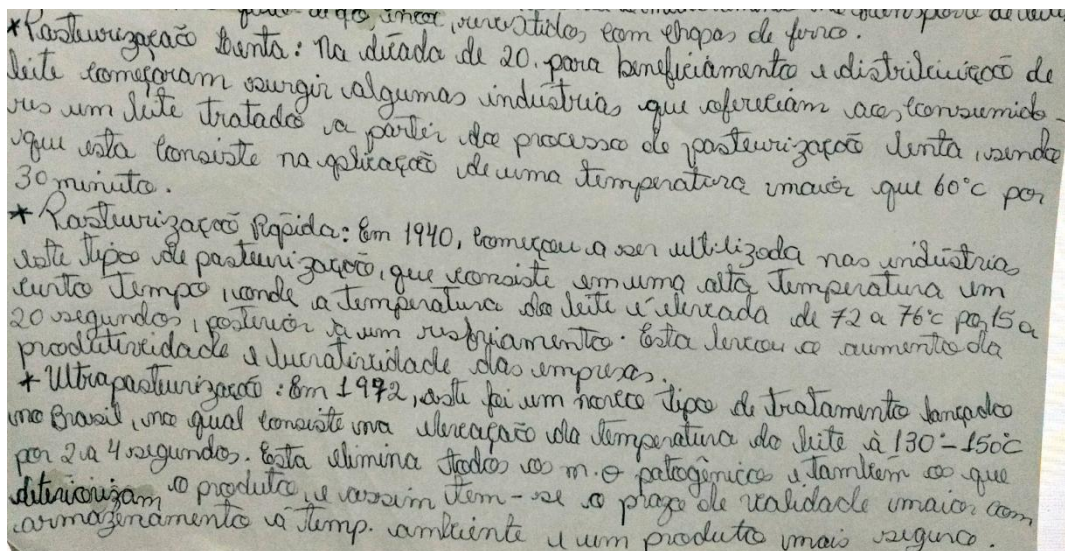 inox, revestidos com chapas de ferro.
*Pasteurização Lenta: Na década de 20. para beneficiamento e distribuição de
leite começaram surgir algumas indústrias que ofereciam aos consumido-
res um leite tratado a partir do processo de pasteurização lenta, sendo
que esta consiste na aplicação de uma temperatura maior que 60°c por
30 minuto.
* Pasteurização Rápida: Em 1940, começou a ser ultilizada nas indústrias
este tipo de pasteurização, que consiste em uma alta temperatura em
curto tempo, onde a temperatura do leite é elevada de 72 a 76°c por 15 a
20 segundos, posterior a um resfriamento. Esta levou o aumento da
produtividade e lucratividade das empresas.
* Ultrapasteurização: Em 1972, este foi um novo tipo de tratamento lançado
no Brasil, no qual consiste na elevação da temperatura do leite à 130°-150°c
por 2 a 4 segundos. Esta elimina todos os m.o patogênicos e também os que
deteriorizam o produto, e assim tem-se o prazo de validade maior com
armazenamento à temp. ambiente e um produto mais seguro.